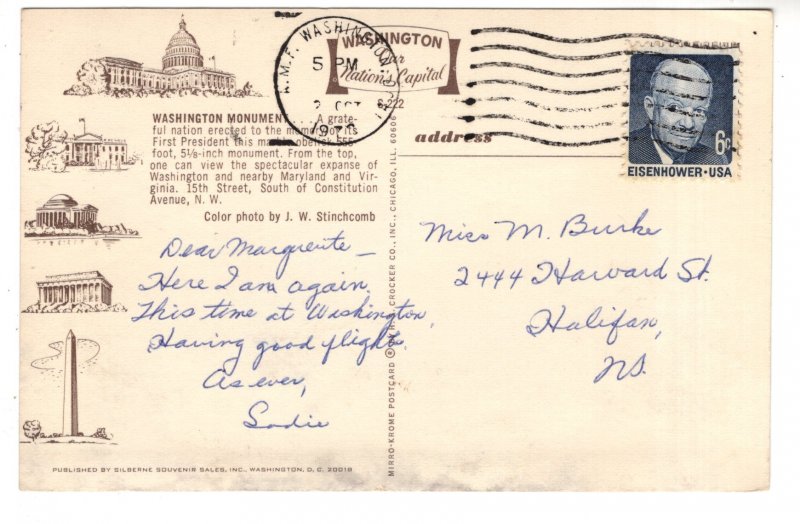 A.M.F. WASHINGTON, D.C.
5 PM
2 OCT
WASHINGTON
Our
Nation's Capital
S-222
WASHINGTON MONUMENT. A grate-
ful nation erected to the memory of its
First President this marble obelisk 555-
foot, 5⅛-inch monument. From the top,
one can view the spectacular expanse of
Washington and nearby Maryland and Vir-
ginia. 15th Street, South of Constitution
Avenue, N. W.
Color photo by J. W. Stinchcomb
Dear Marguerite –
Here I am again.
This time at Washington,
Having good flight.
As ever,
Sadie
PUBLISHED BY SILBERNE SOUVENIR SALES, INC., WASHINGTON, D. C. 20018
MIRRO-KROME POSTCARD ® BY H. S. CROCKER CO., INC., CHICAGO, ILL. 60606
address
6¢
EISENHOWER·USA
Miss M. Burke
2444 Harvard St.
Halifax,
NS.